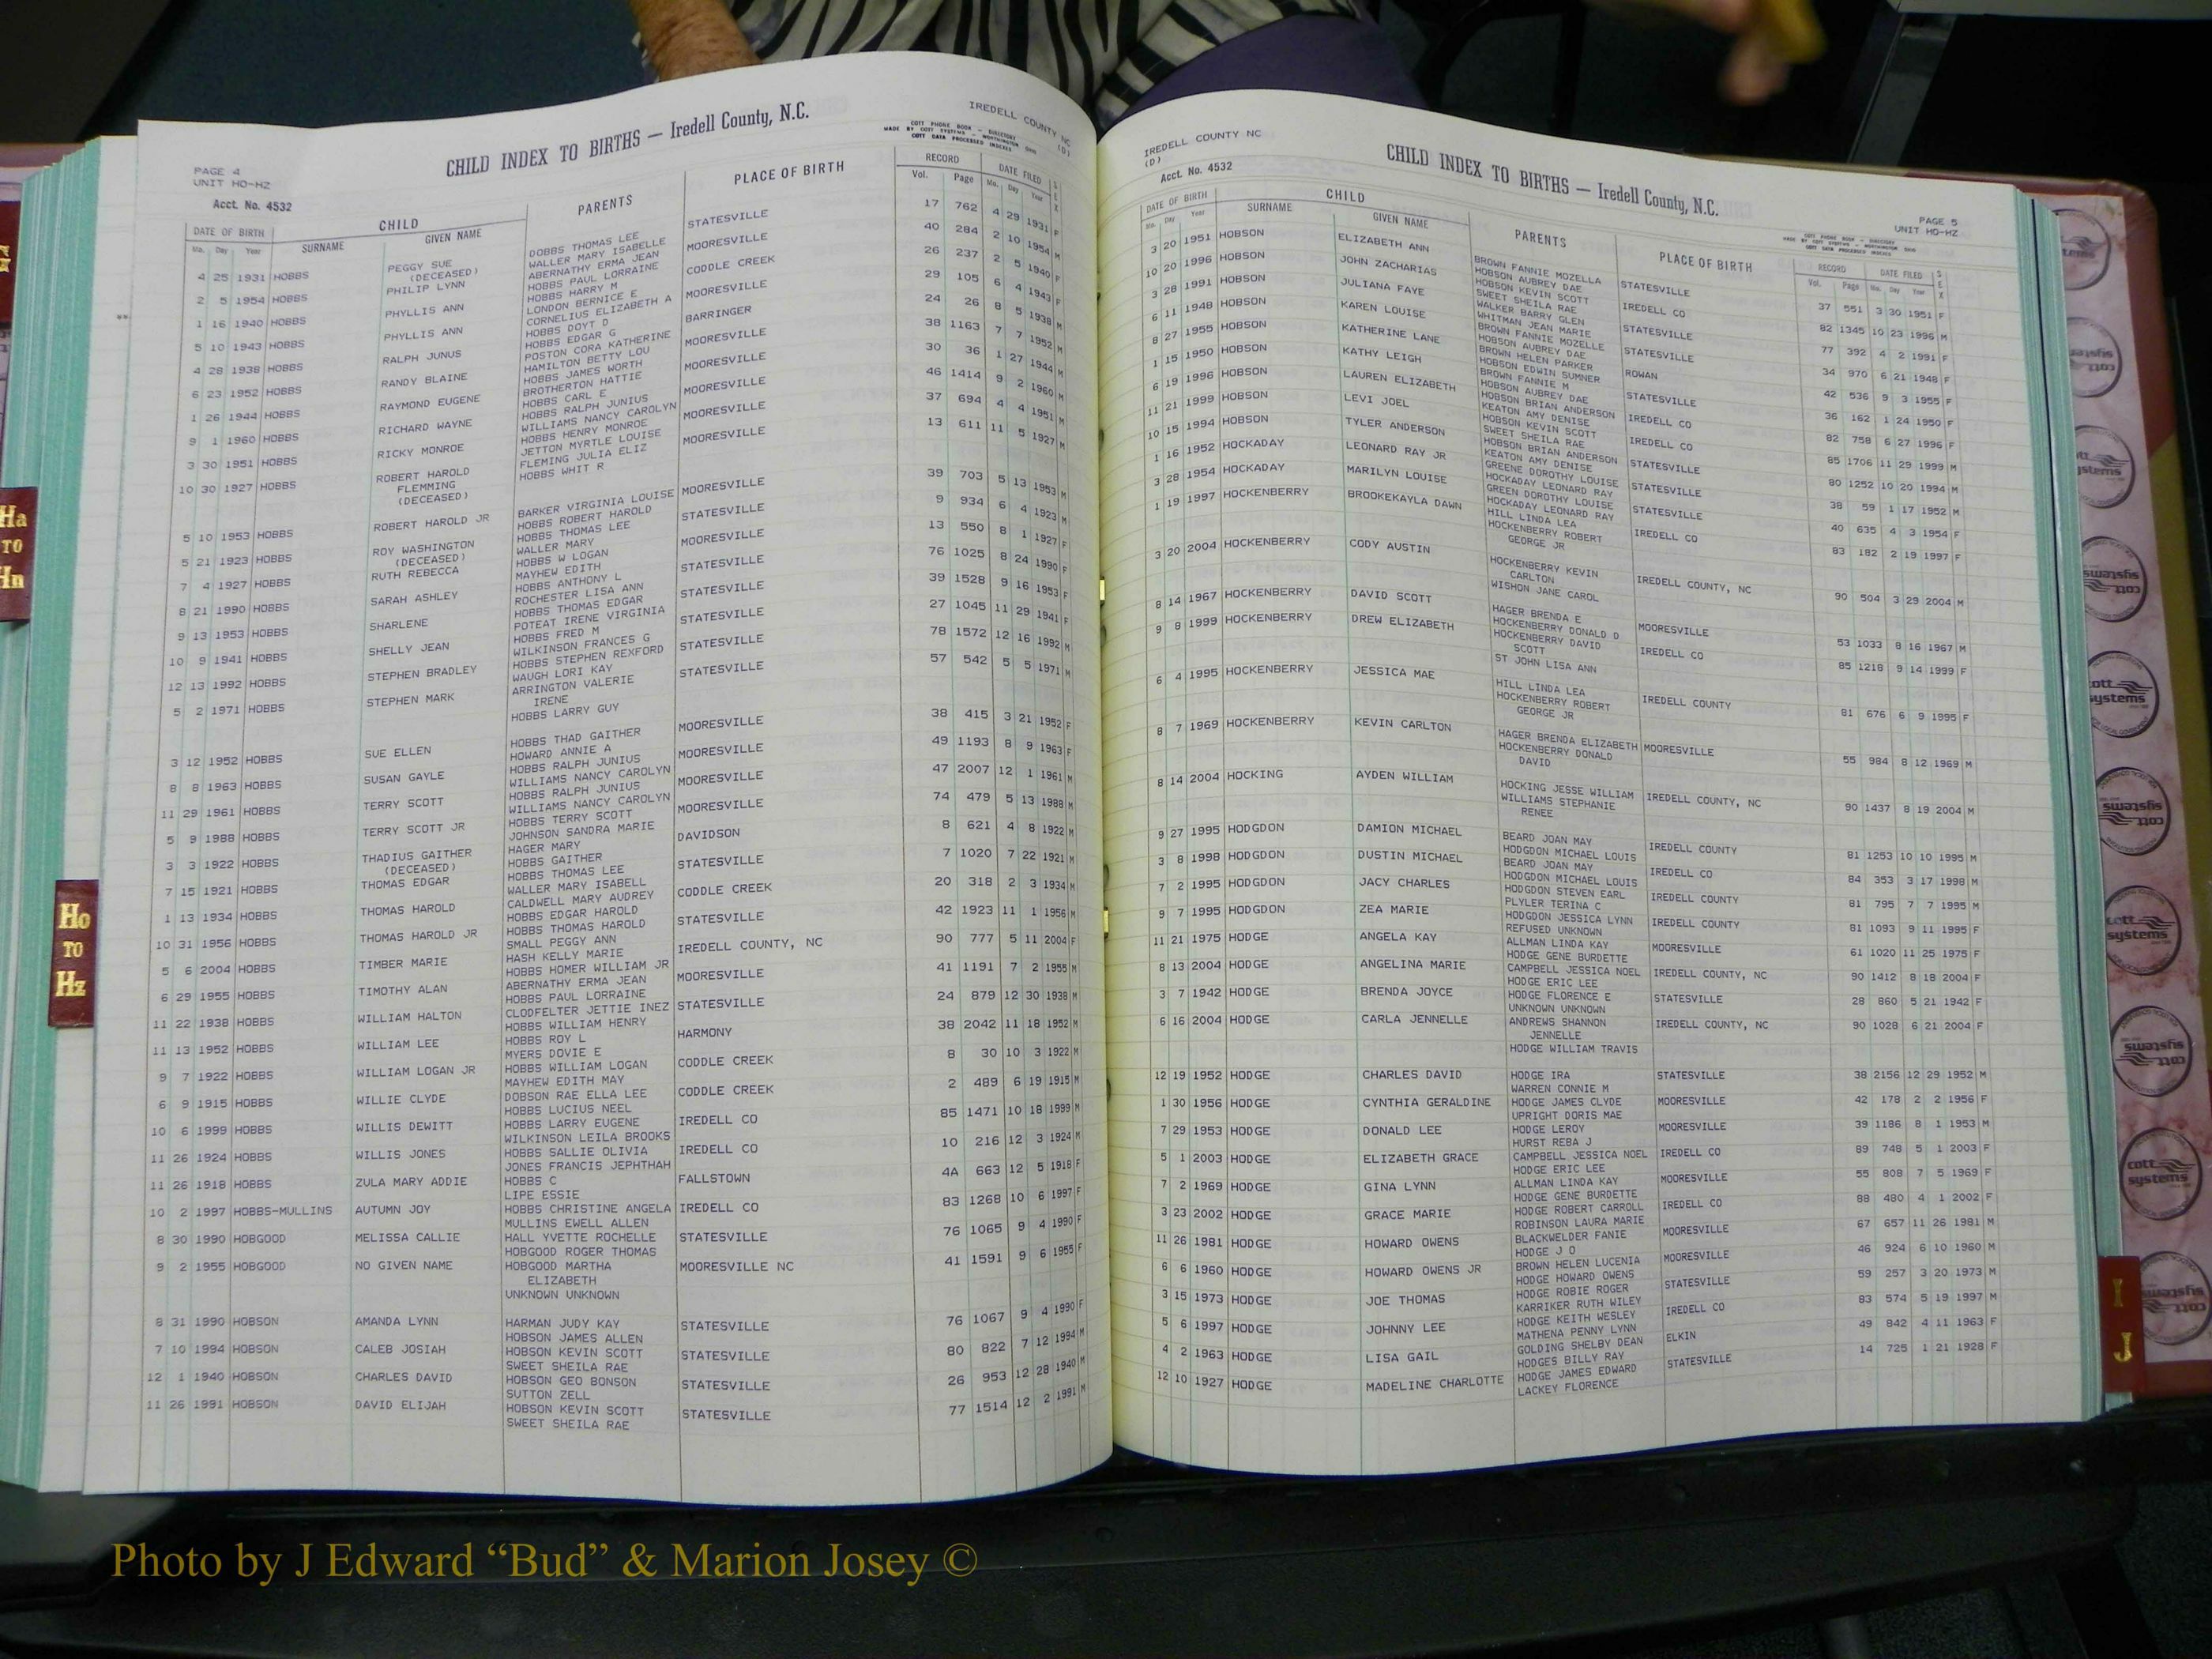 IREDELL COUNTY NC
(D)
CHILD INDEX TO BIRTHS — Iredell County, N.C.
COTT PHONE BOOK - DIRECTORY
MADE BY COTT SYSTEMS - WORTHINGTON OHIO
COTT DATA PROCESSED INDEXES
PAGE 4
UNIT HO-HZ
Acct. No. 4532
DATE OF BIRTH CHILD PARENTS PLACE OF BIRTH RECORD DATE FILED SEX
Mo. Day Year SURNAME GIVEN NAME Vol. Page Mo. Day Year
4 25 1931 HOBBS PEGGY SUE DOBBS THOMAS LEE STATESVILLE 17 762 4 29 1931 F
(DECEASED) WALLER MARY ISABELLE
2 5 1954 HOBBS PHILIP LYNN ABERNATHY ERMA JEAN MOORESVILLE 40 284 2 10 1954 M
HOBBS PAUL LORRAINE
1 16 1940 HOBBS PHYLLIS ANN HOBBS HARRY M CODDLE CREEK 26 237 2 5 1940 F
LONDON BERNICE E
5 10 1943 HOBBS PHYLLIS ANN CORNELIUS ELIZABETH A MOORESVILLE 29 105 6 4 1943 F
HOBBS DOYT D
4 28 1938 HOBBS RALPH JUNUS HOBBS EDGAR G BARRINGER 24 26 8 5 1938 M
POSTON CORA KATHERINE
6 23 1952 HOBBS RANDY BLAINE HAMILTON BETTY LOU MOORESVILLE 38 1163 7 7 1952 M
HOBBS JAMES WORTH
1 26 1944 HOBBS RAYMOND EUGENE BROTHERTON HATTIE MOORESVILLE 30 36 1 27 1944 M
HOBBS CARL E
9 1 1960 HOBBS RICHARD WAYNE HOBBS RALPH JUNIUS MOORESVILLE 46 1414 9 2 1960 M
WILLIAMS NANCY CAROLYN
3 30 1951 HOBBS RICKY MONROE HOBBS HENRY MONROE MOORESVILLE 37 694 4 4 1951 M
JETTON MYRTLE LOUISE
10 30 1927 HOBBS ROBERT HAROLD FLEMING JULIA ELIZ MOORESVILLE 13 611 11 5 1927 M
FLEMMING HOBBS WHIT R
(DECEASED)
5 10 1953 HOBBS ROBERT HAROLD JR BARKER VIRGINIA LOUISE MOORESVILLE 39 703 5 13 1953 M
HOBBS ROBERT HAROLD
5 21 1923 HOBBS ROY WASHINGTON HOBBS THOMAS LEE STATESVILLE 9 934 6 4 1923 M
(DECEASED) WALLER MARY
7 4 1927 HOBBS RUTH REBECCA HOBBS W LOGAN MOORESVILLE 13 550 8 1 1927 F
MAYHEW EDITH
8 21 1990 HOBBS SARAH ASHLEY HOBBS ANTHONY L STATESVILLE 76 1025 8 24 1990 F
ROCHESTER LISA ANN
9 13 1953 HOBBS SHARLENE HOBBS THOMAS EDGAR STATESVILLE 39 1528 9 16 1953 F
POTEAT IRENE VIRGINIA
10 9 1941 HOBBS SHELLY JEAN HOBBS FRED M STATESVILLE 27 1045 11 29 1941 F
WILKINSON FRANCES G
12 13 1992 HOBBS STEPHEN BRADLEY HOBBS STEPHEN REXFORD STATESVILLE 78 1572 12 16 1992 M
WAUGH LORI KAY
5 2 1971 HOBBS STEPHEN MARK ARRINGTON VALERIE STATESVILLE 57 542 5 5 1971 M
IRENE
HOBBS LARRY GUY
3 12 1952 HOBBS SUE ELLEN HOBBS THAD GAITHER MOORESVILLE 38 415 3 21 1952 F
HOWARD ANNIE A
8 8 1963 HOBBS SUSAN GAYLE HOBBS RALPH JUNIUS MOORESVILLE 49 1193 8 9 1963 F
WILLIAMS NANCY CAROLYN
11 29 1961 HOBBS TERRY SCOTT HOBBS RALPH JUNIUS MOORESVILLE 47 2007 12 1 1961 M
WILLIAMS NANCY CAROLYN
5 9 1988 HOBBS TERRY SCOTT JR HOBBS TERRY SCOTT MOORESVILLE 74 479 5 13 1988 M
JOHNSON SANDRA MARIE
3 3 1922 HOBBS THADIUS GAITHER HAGER MARY DAVIDSON 8 621 4 8 1922 M
(DECEASED) HOBBS GAITHER
7 15 1921 HOBBS THOMAS EDGAR HOBBS THOMAS LEE STATESVILLE 7 1020 7 22 1921 M
WALLER MARY ISABELL
1 13 1934 HOBBS THOMAS HAROLD CALDWELL MARY AUDREY CODDLE CREEK 20 318 2 3 1934 M
HOBBS EDGAR HAROLD
10 31 1956 HOBBS THOMAS HAROLD JR HOBBS THOMAS HAROLD STATESVILLE 42 1923 11 1 1956 M
SMALL PEGGY ANN
5 6 2004 HOBBS TIMBER MARIE HASH KELLY MARIE IREDELL COUNTY, NC 90 777 5 11 2004 F
HOBBS HOMER WILLIAM JR
6 29 1955 HOBBS TIMOTHY ALAN ABERNATHY ERMA JEAN MOORESVILLE 41 1191 7 2 1955 M
HOBBS PAUL LORRAINE
11 22 1938 HOBBS WILLIAM HALTON CLODFELTER JETTIE INEZ STATESVILLE 24 879 12 30 1938 M
HOBBS WILLIAM HENRY
11 13 1952 HOBBS WILLIAM LEE HOBBS ROY L HARMONY 38 2042 11 18 1952 M
MYERS DOVIE E
9 7 1922 HOBBS WILLIAM LOGAN JR HOBBS WILLIAM LOGAN CODDLE CREEK 8 30 10 3 1922 M
MAYHEW EDITH MAY
6 9 1915 HOBBS WILLIE CLYDE DOBSON RAE ELLA LEE CODDLE CREEK 2 489 6 19 1915 M
HOBBS LUCIUS NEEL
10 6 1999 HOBBS WILLIS DEWITT HOBBS LARRY EUGENE IREDELL CO 85 1471 10 18 1999 M
WILKINSON LEILA BROOKS
11 26 1924 HOBBS WILLIS JONES HOBBS SALLIE OLIVIA IREDELL CO 10 216 12 3 1924 M
JONES FRANCIS JEPHTHAH
11 26 1918 HOBBS ZULA MARY ADDIE HOBBS C FALLSTOWN 4A 663 12 5 1918 F
LIPE ESSIE
10 2 1997 HOBBS-MULLINS AUTUMN JOY HOBBS CHRISTINE ANGELA IREDELL CO 83 1268 10 6 1997 F
MULLINS EWELL ALLEN
8 30 1990 HOBGOOD MELISSA CALLIE HALL YVETTE ROCHELLE STATESVILLE 76 1065 9 4 1990 F
HOBGOOD ROGER THOMAS
9 2 1955 HOBGOOD NO GIVEN NAME HOBGOOD MARTHA MOORESVILLE NC 41 1591 9 6 1955 F
ELIZABETH
UNKNOWN UNKNOWN
8 31 1990 HOBSON AMANDA LYNN HARMAN JUDY KAY STATESVILLE 76 1067 9 4 1990 F
HOBSON JAMES ALLEN
7 10 1994 HOBSON CALEB JOSIAH HOBSON KEVIN SCOTT STATESVILLE 80 822 7 12 1994 M
SWEET SHEILA RAE
12 1 1940 HOBSON CHARLES DAVID HOBSON GEO BONSON STATESVILLE 26 953 12 28 1940 M
SUTTON ZELL
11 26 1991 HOBSON DAVID ELIJAH HOBSON KEVIN SCOTT STATESVILLE 77 1514 12 2 1991 M
SWEET SHEILA RAE
IREDELL COUNTY NC
(D)
Acct. No. 4532
CHILD INDEX TO BIRTHS — Iredell County, N.C.
PAGE 5
UNIT HO-HZ
COTT PHONE BOOK - DIRECTORY
MADE BY COTT SYSTEMS - WORTHINGTON OHIO
COTT DATA PROCESSED INDEXES
DATE OF BIRTH CHILD PARENTS PLACE OF BIRTH RECORD DATE FILED SEX
Mo. Day Year SURNAME GIVEN NAME Vol. Page Mo. Day Year
3 20 1951 HOBSON ELIZABETH ANN BROWN FANNIE MOZELLA STATESVILLE 37 551 3 30 1951 F
HOBSON AUBREY DAE
10 20 1996 HOBSON JOHN ZACHARIAS HOBSON KEVIN SCOTT IREDELL CO 82 1345 10 23 1996 M
SWEET SHEILA RAE
3 28 1991 HOBSON JULIANA FAYE WALKER BARRY GLEN STATESVILLE 77 392 4 2 1991 F
WHITMAN JEAN MARIE
6 11 1948 HOBSON KAREN LOUISE BROWN FANNIE MOZELLE STATESVILLE 34 970 6 21 1948 F
HOBSON AUBREY DAE
8 27 1955 HOBSON KATHERINE LANE BROWN HELEN PARKER ROWAN 42 536 9 3 1955 F
HOBSON EDWIN SUMNER
1 15 1950 HOBSON KATHY LEIGH BROWN FANNIE M STATESVILLE 36 162 1 24 1950 F
HOBSON AUBREY DAE
6 19 1996 HOBSON LAUREN ELIZABETH HOBSON BRIAN ANDERSON IREDELL CO 82 758 6 27 1996 F
KEATON AMY DENISE
11 21 1999 HOBSON LEVI JOEL HOBSON KEVIN SCOTT IREDELL CO 85 1706 11 29 1999 M
SWEET SHEILA RAE
10 15 1994 HOBSON TYLER ANDERSON HOBSON BRIAN ANDERSON STATESVILLE 80 1252 10 20 1994 M
KEATON AMY DENISE
1 16 1952 HOCKADAY LEONARD RAY JR GREENE DOROTHY LOUISE STATESVILLE 38 59 1 17 1952 M
HOCKADAY LEONARD RAY
3 28 1954 HOCKADAY MARILYN LOUISE GREEN DOROTHY LOUISE STATESVILLE 40 635 4 3 1954 F
HOCKADAY LEONARD RAY
1 19 1997 HOCKENBERRY BROOKEKAYLA DAWN HILL LINDA LEA IREDELL CO 83 182 2 19 1997 F
HOCKENBERRY ROBERT
GEORGE JR
3 20 2004 HOCKENBERRY CODY AUSTIN HOCKENBERRY KEVIN IREDELL COUNTY, NC 90 504 3 29 2004 M
CARLTON
WISHON JANE CAROL
8 14 1967 HOCKENBERRY DAVID SCOTT HAGER BRENDA E MOORESVILLE 53 1033 8 16 1967 M
HOCKENBERRY DONALD D
9 8 1999 HOCKENBERRY DREW ELIZABETH HOCKENBERRY DAVID IREDELL CO 85 1218 9 14 1999 F
SCOTT
ST JOHN LISA ANN
6 4 1995 HOCKENBERRY JESSICA MAE HILL LINDA LEA IREDELL COUNTY 81 676 6 9 1995 F
HOCKENBERRY ROBERT
GEORGE JR
8 7 1969 HOCKENBERRY KEVIN CARLTON HAGER BRENDA ELIZABETH MOORESVILLE 55 984 8 12 1969 M
HOCKENBERRY DONALD
DAVID
8 14 2004 HOCKING AYDEN WILLIAM HOCKING JESSE WILLIAM IREDELL COUNTY, NC 90 1437 8 19 2004 M
WILLIAMS STEPHANIE
RENEE
9 27 1995 HODGDON DAMION MICHAEL BEARD JOAN MAY IREDELL COUNTY 81 1253 10 10 1995 M
HODGDON MICHAEL LOUIS
3 8 1998 HODGDON DUSTIN MICHAEL BEARD JOAN MAY IREDELL CO 84 353 3 17 1998 M
HODGDON MICHAEL LOUIS
7 2 1995 HODGDON JACY CHARLES HODGDON STEVEN EARL IREDELL COUNTY 81 795 7 7 1995 M
PLYLER TERINA C
9 7 1995 HODGDON ZEA MARIE HODGDON JESSICA LYNN IREDELL COUNTY 81 1093 9 11 1995 F
REFUSED UNKNOWN
11 21 1975 HODGE ANGELA KAY ALLMAN LINDA KAY MOORESVILLE 61 1020 11 25 1975 F
HODGE GENE BURDETTE
8 13 2004 HODGE ANGELINA MARIE CAMPBELL JESSICA NOEL IREDELL COUNTY, NC 90 1412 8 18 2004 F
HODGE ERIC LEE
3 7 1942 HODGE BRENDA JOYCE HODGE FLORENCE E STATESVILLE 28 860 5 21 1942 F
UNKNOWN UNKNOWN
6 16 2004 HODGE CARLA JENNELLE ANDREWS SHANNON IREDELL COUNTY, NC 90 1028 6 21 2004 F
JENNELLE
HODGE WILLIAM TRAVIS
12 19 1952 HODGE CHARLES DAVID HODGE IRA STATESVILLE 38 2156 12 29 1952 M
WARREN CONNIE M
1 30 1956 HODGE CYNTHIA GERALDINE HODGE JAMES CLYDE MOORESVILLE 42 178 2 2 1956 F
UPRIGHT DORIS MAE
7 29 1953 HODGE DONALD LEE HODGE LEROY MOORESVILLE 39 1186 8 1 1953 M
HURST REBA J
5 1 2003 HODGE ELIZABETH GRACE CAMPBELL JESSICA NOEL IREDELL CO 89 748 5 1 2003 F
HODGE ERIC LEE
7 2 1969 HODGE GINA LYNN ALLMAN LINDA KAY MOORESVILLE 55 808 7 5 1969 F
HODGE GENE BURDETTE
3 23 2002 HODGE GRACE MARIE HODGE ROBERT CARROLL IREDELL CO 88 480 4 1 2002 F
ROBINSON LAURA MARIE
11 26 1981 HODGE HOWARD OWENS BLACKWELDER FANIE MOORESVILLE 67 657 11 26 1981 M
HODGE J O
6 6 1960 HODGE HOWARD OWENS JR BROWN HELEN LUCENIA MOORESVILLE 46 924 6 10 1960 M
HODGE HOWARD OWENS
3 15 1973 HODGE JOE THOMAS HODGE ROBIE ROGER STATESVILLE 59 257 3 20 1973 M
KARRIKER RUTH WILEY
5 6 1997 HODGE JOHNNY LEE HODGE KEITH WESLEY IREDELL CO 83 574 5 19 1997 M
MATHENA PENNY LYNN
4 2 1963 HODGE LISA GAIL GOLDING SHELBY DEAN ELKIN 49 842 4 11 1963 F
HODGES BILLY RAY
12 10 1927 HODGE MADELINE CHARLOTTE HODGE JAMES EDWARD STATESVILLE 14 725 1 21 1928 F
LACKEY FLORENCE
Ha
TO
Hn
Ho
TO
Hz
I
J
cott
systems
Photo by J Edward “Bud” & Marion Josey ©